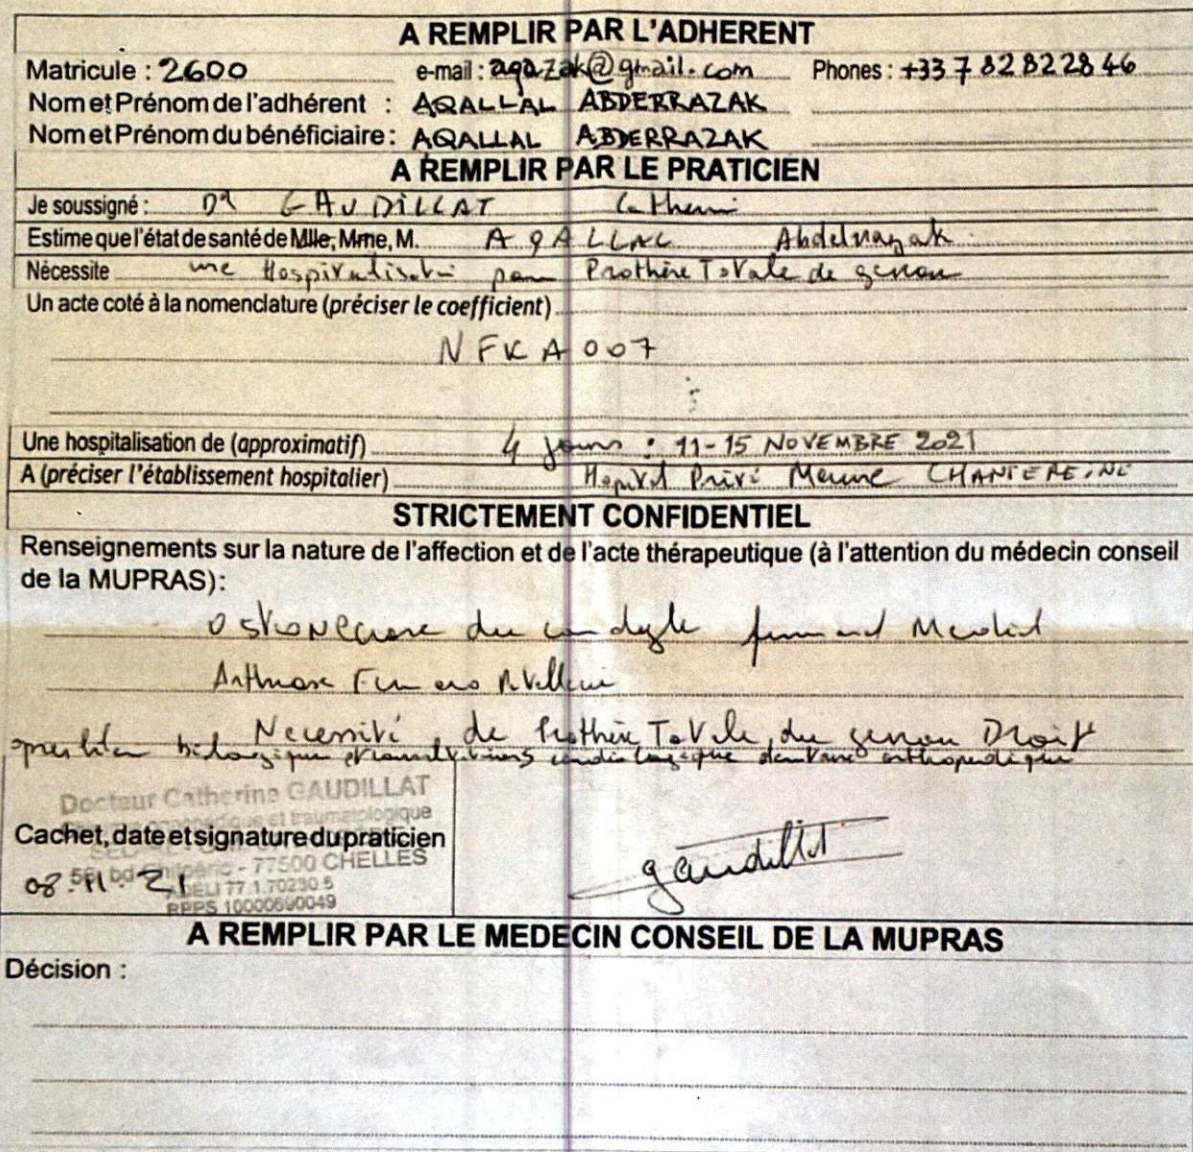 A REMPLIR PAR L'ADHERENT
Matricule : 2600 e-mail : aqazak@gmail.com Phones : +33 7 82 82 28 46
Nom et Prénom de l'adhérent : AQALLAL ABDERRAZAK
Nom et Prénom du bénéficiaire : AQALLAL ABDERRAZAK
A REMPLIR PAR LE PRATICIEN
Je soussigné : Dr GAUDILLAT Catherine
Estime que l'état de santé de Mlle, Mme, M. AQALLAL Abdelrazak
Nécessite une Hospitalisation pour Prothèse Totale de genou
Un acte coté à la nomenclature (préciser le coefficient)
NFKA007
Une hospitalisation de (approximatif) 4 jours : 11-15 NOVEMBRE 2021
A (préciser l'établissement hospitalier) Hopital Privé Marne CHANTEREINE
STRICTEMENT CONFIDENTIEL
Renseignements sur la nature de l'affection et de l'acte thérapeutique (à l'attention du médecin conseil
de la MUPRAS):
Ostéonécrose du condyle fémoral Medial
Arthrose Femoro Patellaire
Nécessité de Prothèse Totale du genou Droit
après bilan biologique et consultations cardiologique dentaire orthopédique
Docteur Catherine GAUDILLAT
et traumatologique
Cachet, date et signature du praticien
bd - 77500 CHELLES
08.11.21
ADELI 77.1.70230 5
RPPS 10000690049
gaudillat
A REMPLIR PAR LE MEDECIN CONSEIL DE LA MUPRAS
Décision :